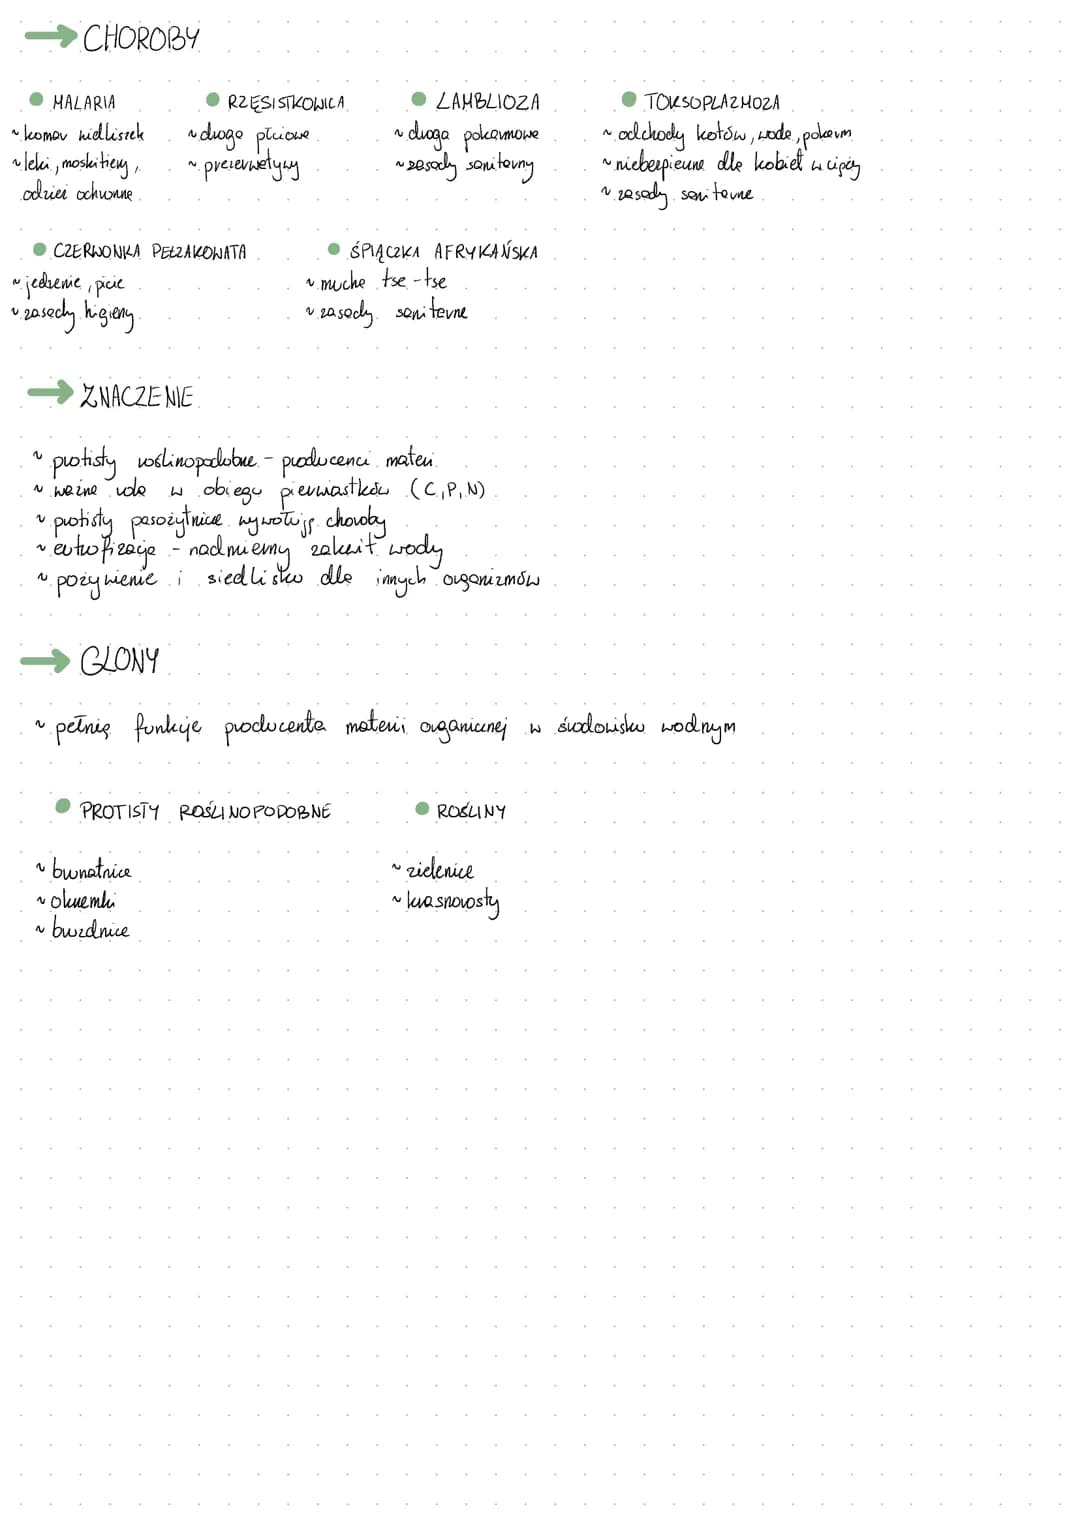 → CHOROBY
• MALARIA
~ komar widliszek
~ leki, moskitiery,
odzież ochronna
• RZĘSISTKOWICA
~ droga płciowa
~ prezerwatywy
• LAMBLIOZA
~ droga pokarmowa
~ zasady sanitarny
• TOKSOPLAZMOZA
~ odchody kotów, woda, pokarm
~ niebezpieczne dla kobiet w ciąży
~ zasady sanitarne
• CZERWONKA PEŁZAKOWATA
~ jedzenie, picie
~ zasady higieny
• ŚPIĄCZKA AFRYKAŃSKA
~ mucha tse-tse
~ zasady sanitarne
→ ZNACZENIE
~ protisty roślinopodobne - producenci materi
~ ważna rola w obiegu pierwiastków (C, P, N)
~ protisty pasożytnicze wywołują choroby
~ eutrofizacja - nadmierny zakwit wody
~ pożywienie i siedlisko dla innych organizmów
→ GLONY
~ pełnią funkcje producenta materii organicznej w środowisku wodnym
• PROTISTY ROŚLINOPODOBNE
~ brunatnice
~ okrzemki
~ bruzdnice
• ROŚLINY
~ zielenice
~ krasnorosty